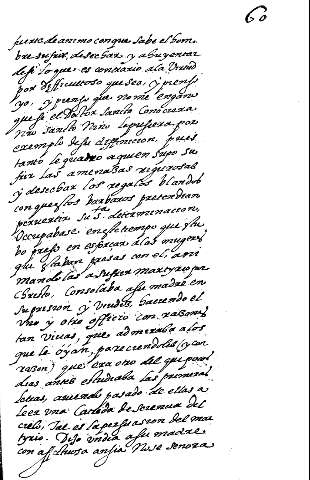 60
fuerte de animo con que sabe el hom-
bre sufrir, desechar, y ahuyentar
de si lo que es contrario a la Virtud
por dificultoso que sea, y pienso
yo, y pienso que no me engaño
que si el Doctor Santo conociera
nro Santo Niño lo pusiera por
exemplo de su difinicion, pues
tanto le quadro a quien supo su
frir las amenazas rigurosas
y desechar los regalos blandos
con que los barbaros pretendian
pervertir su sta determinacion.
Occupabase en este tiempo que stu
bo preso en esforçar a las mugeres
que estaban presas con el, ani
mandolas a sufrir Martyrio por
Christo, Consolaba a su madre en
su prision y viudez, haciendo el
uno y otro officio con razones
tan vivas, que admiraba a los
que le oýan, pareciendoles (y con
razon) que era otro del que pocos
dias antes estudiaba las primeras
letras, aviendo pasado de ellas a
leer una Cathedra de sciencia del
cielo, Tal es la persuasion del mar
tyrio. Dijo un dia a su madre
con affectuosa ansia No se senora